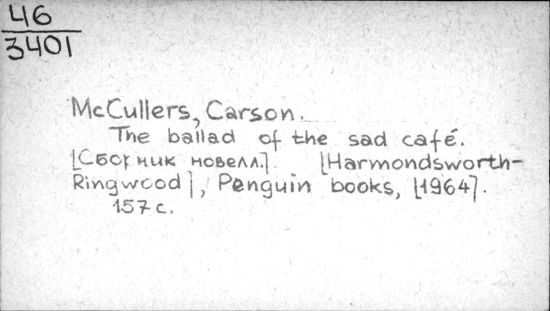 46
3401
McCullers, Carson.
The ballad of the sad café.
[Сборник новелл]. [Harmondsworth-
Ringwood], Penguin books, [1964].
157 с.